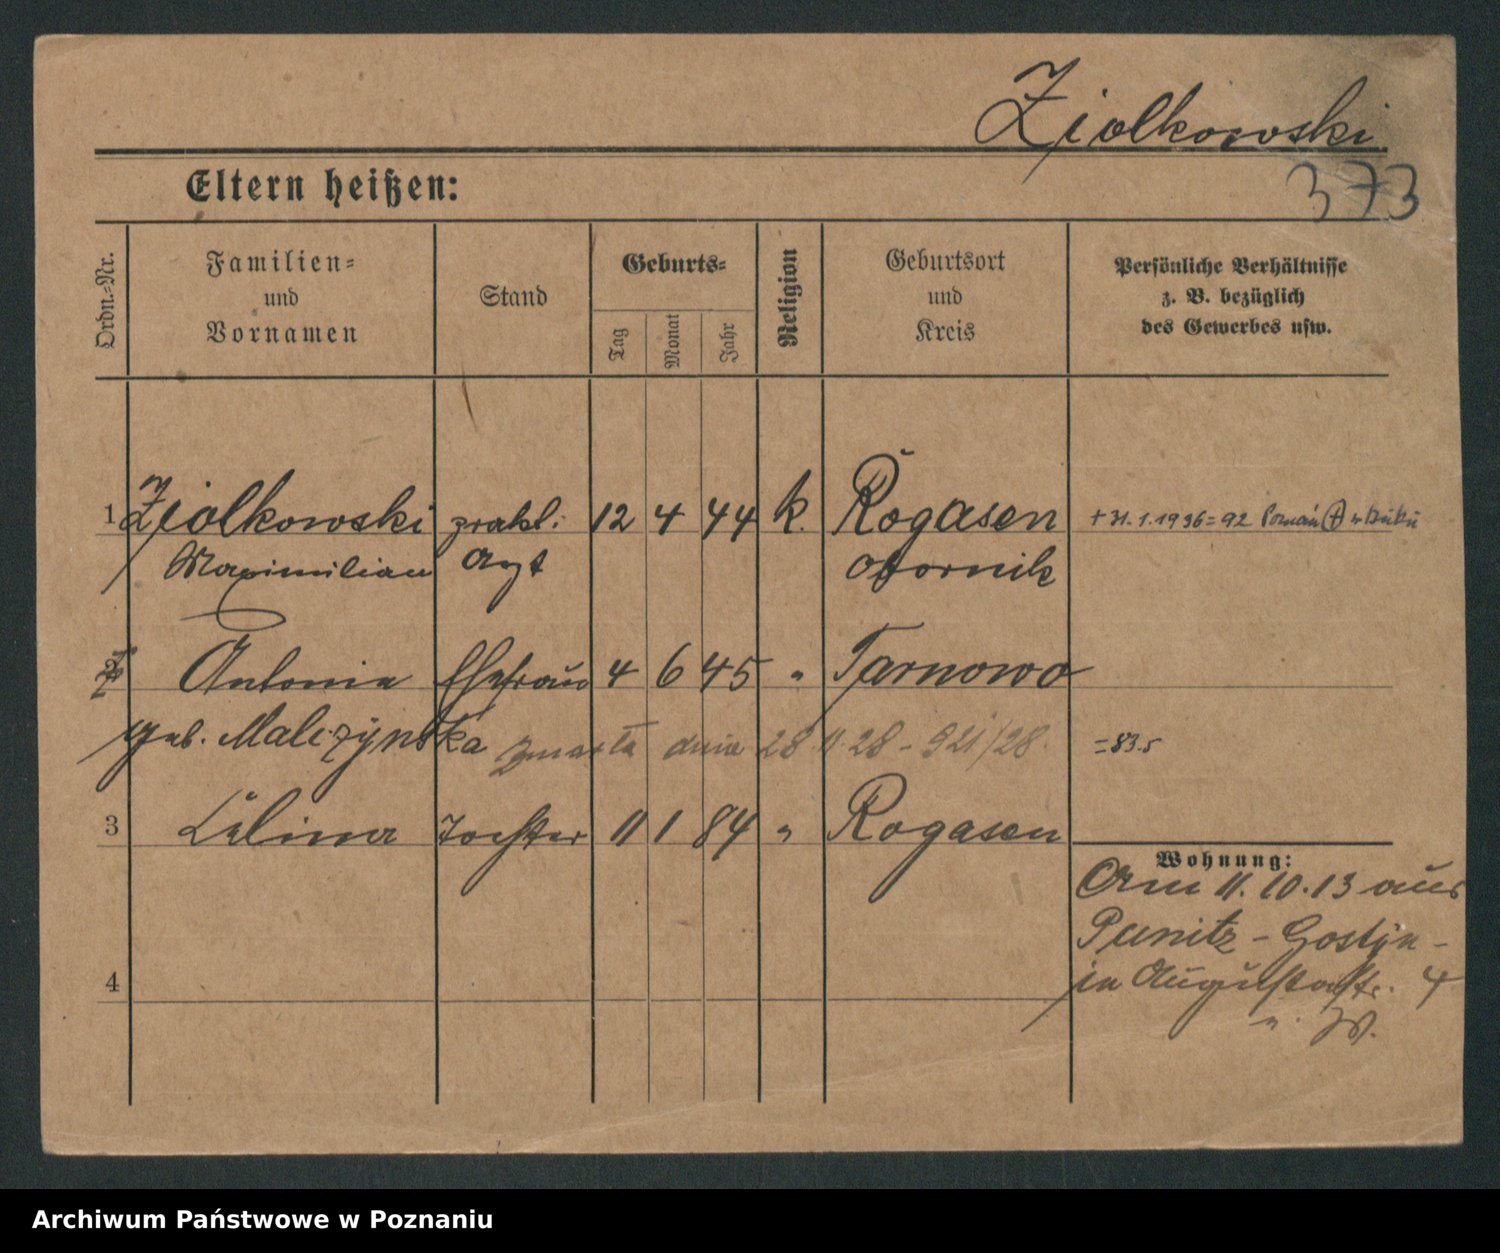 Ziolkowski.
373
Eltern heißen:
Ordn.-Nr.
Familien-
und
Vornamen
Stand
Geburts-
Tag
Monat
Jahr
Religion
Geburtsort
und
Kreis
Persönliche Verhältnisse
z. B. bezüglich
des Gewerbes usw.
1 Ziolkowski prakt. 12 4 44 k. Rogasen + 31.1.1936 = 92 Poznań
Maximilian Arzt Obornik
2 Antonia Ehefrau 4 6 45 " Tarnowo
geb. Malczynska zmarła dnia 28 11 28 - 921/28. = 83.5
3 Celina Tochter 11 1 84 " Rogasen
Wohnung:
Am 11.10.13 aus
Punitz - Gostyn -
in Augustastr. 4
4
Archiwum Państwowe w Poznaniu